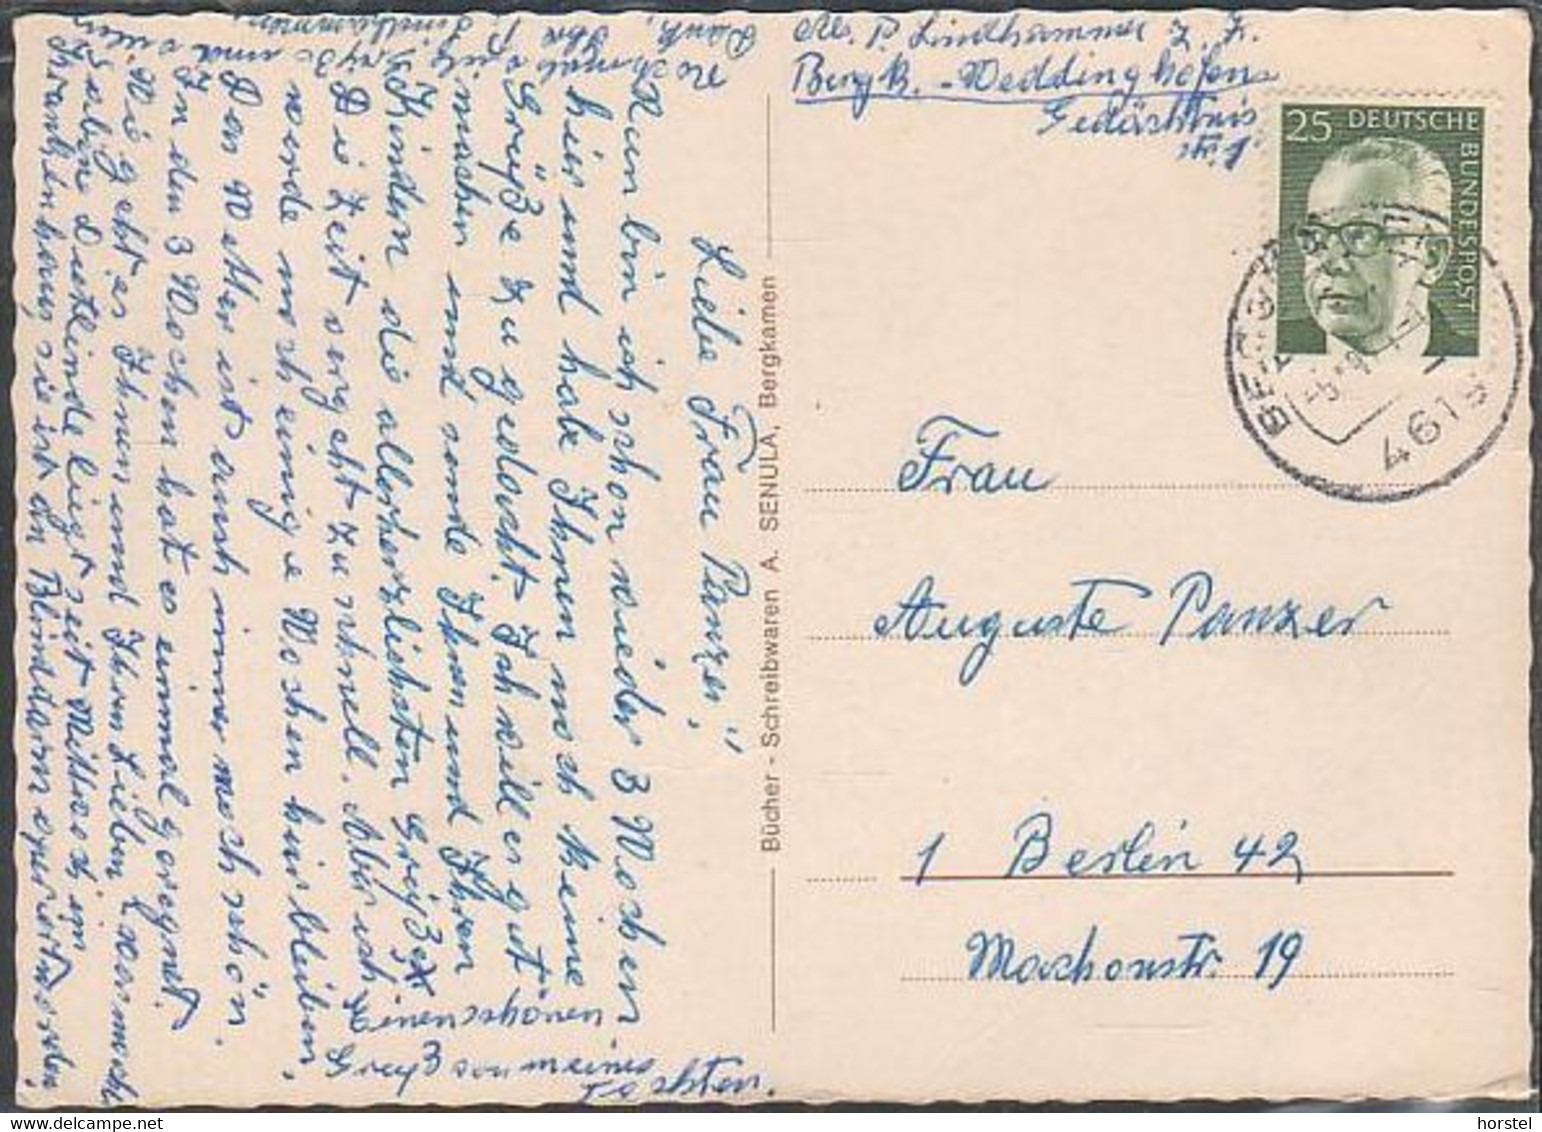 Abs. P. Lindhammer z. Z.
Bergk.-Weddinghofen
Gedächtnis
str. 1
25 DEUTSCHE
BUNDESPOST
4619
Frau
Auguste Panzer
1 Berlin 42
Machonstr. 19
Bücher - Schreibwaren A. SENULA, Bergkamen
Liebe Frau Panzer!
Nun bin ich schon wieder 3 Wochen
hier und habe Ihnen noch keine
Grüße zu gedacht. Ich will es gut
machen und sende Ihnen und Ihren
Kindern die allerherzlichsten Grüße
Die Zeit vergeht zu schnell. Aber ich
werde noch einige Wochen hierbleiben.
Das Wetter ist auch immer noch schön.
In den 3 Wochen hat es einmal geregnet.
Wie geht es Ihnen und Ihren Lieben
Dietlinde liegt seit Mittwoch im
Krankenhaus, sie ist am Blinddarm operiert worden.
Nochmals viele Grüße und
Dank, Ihre P. Lindhammer
Einen schönen
Gruß von meiner
Tochter.